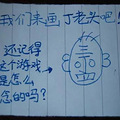 我们来画丁老头吧!
还记得
这个游戏
是怎么
念的吗?